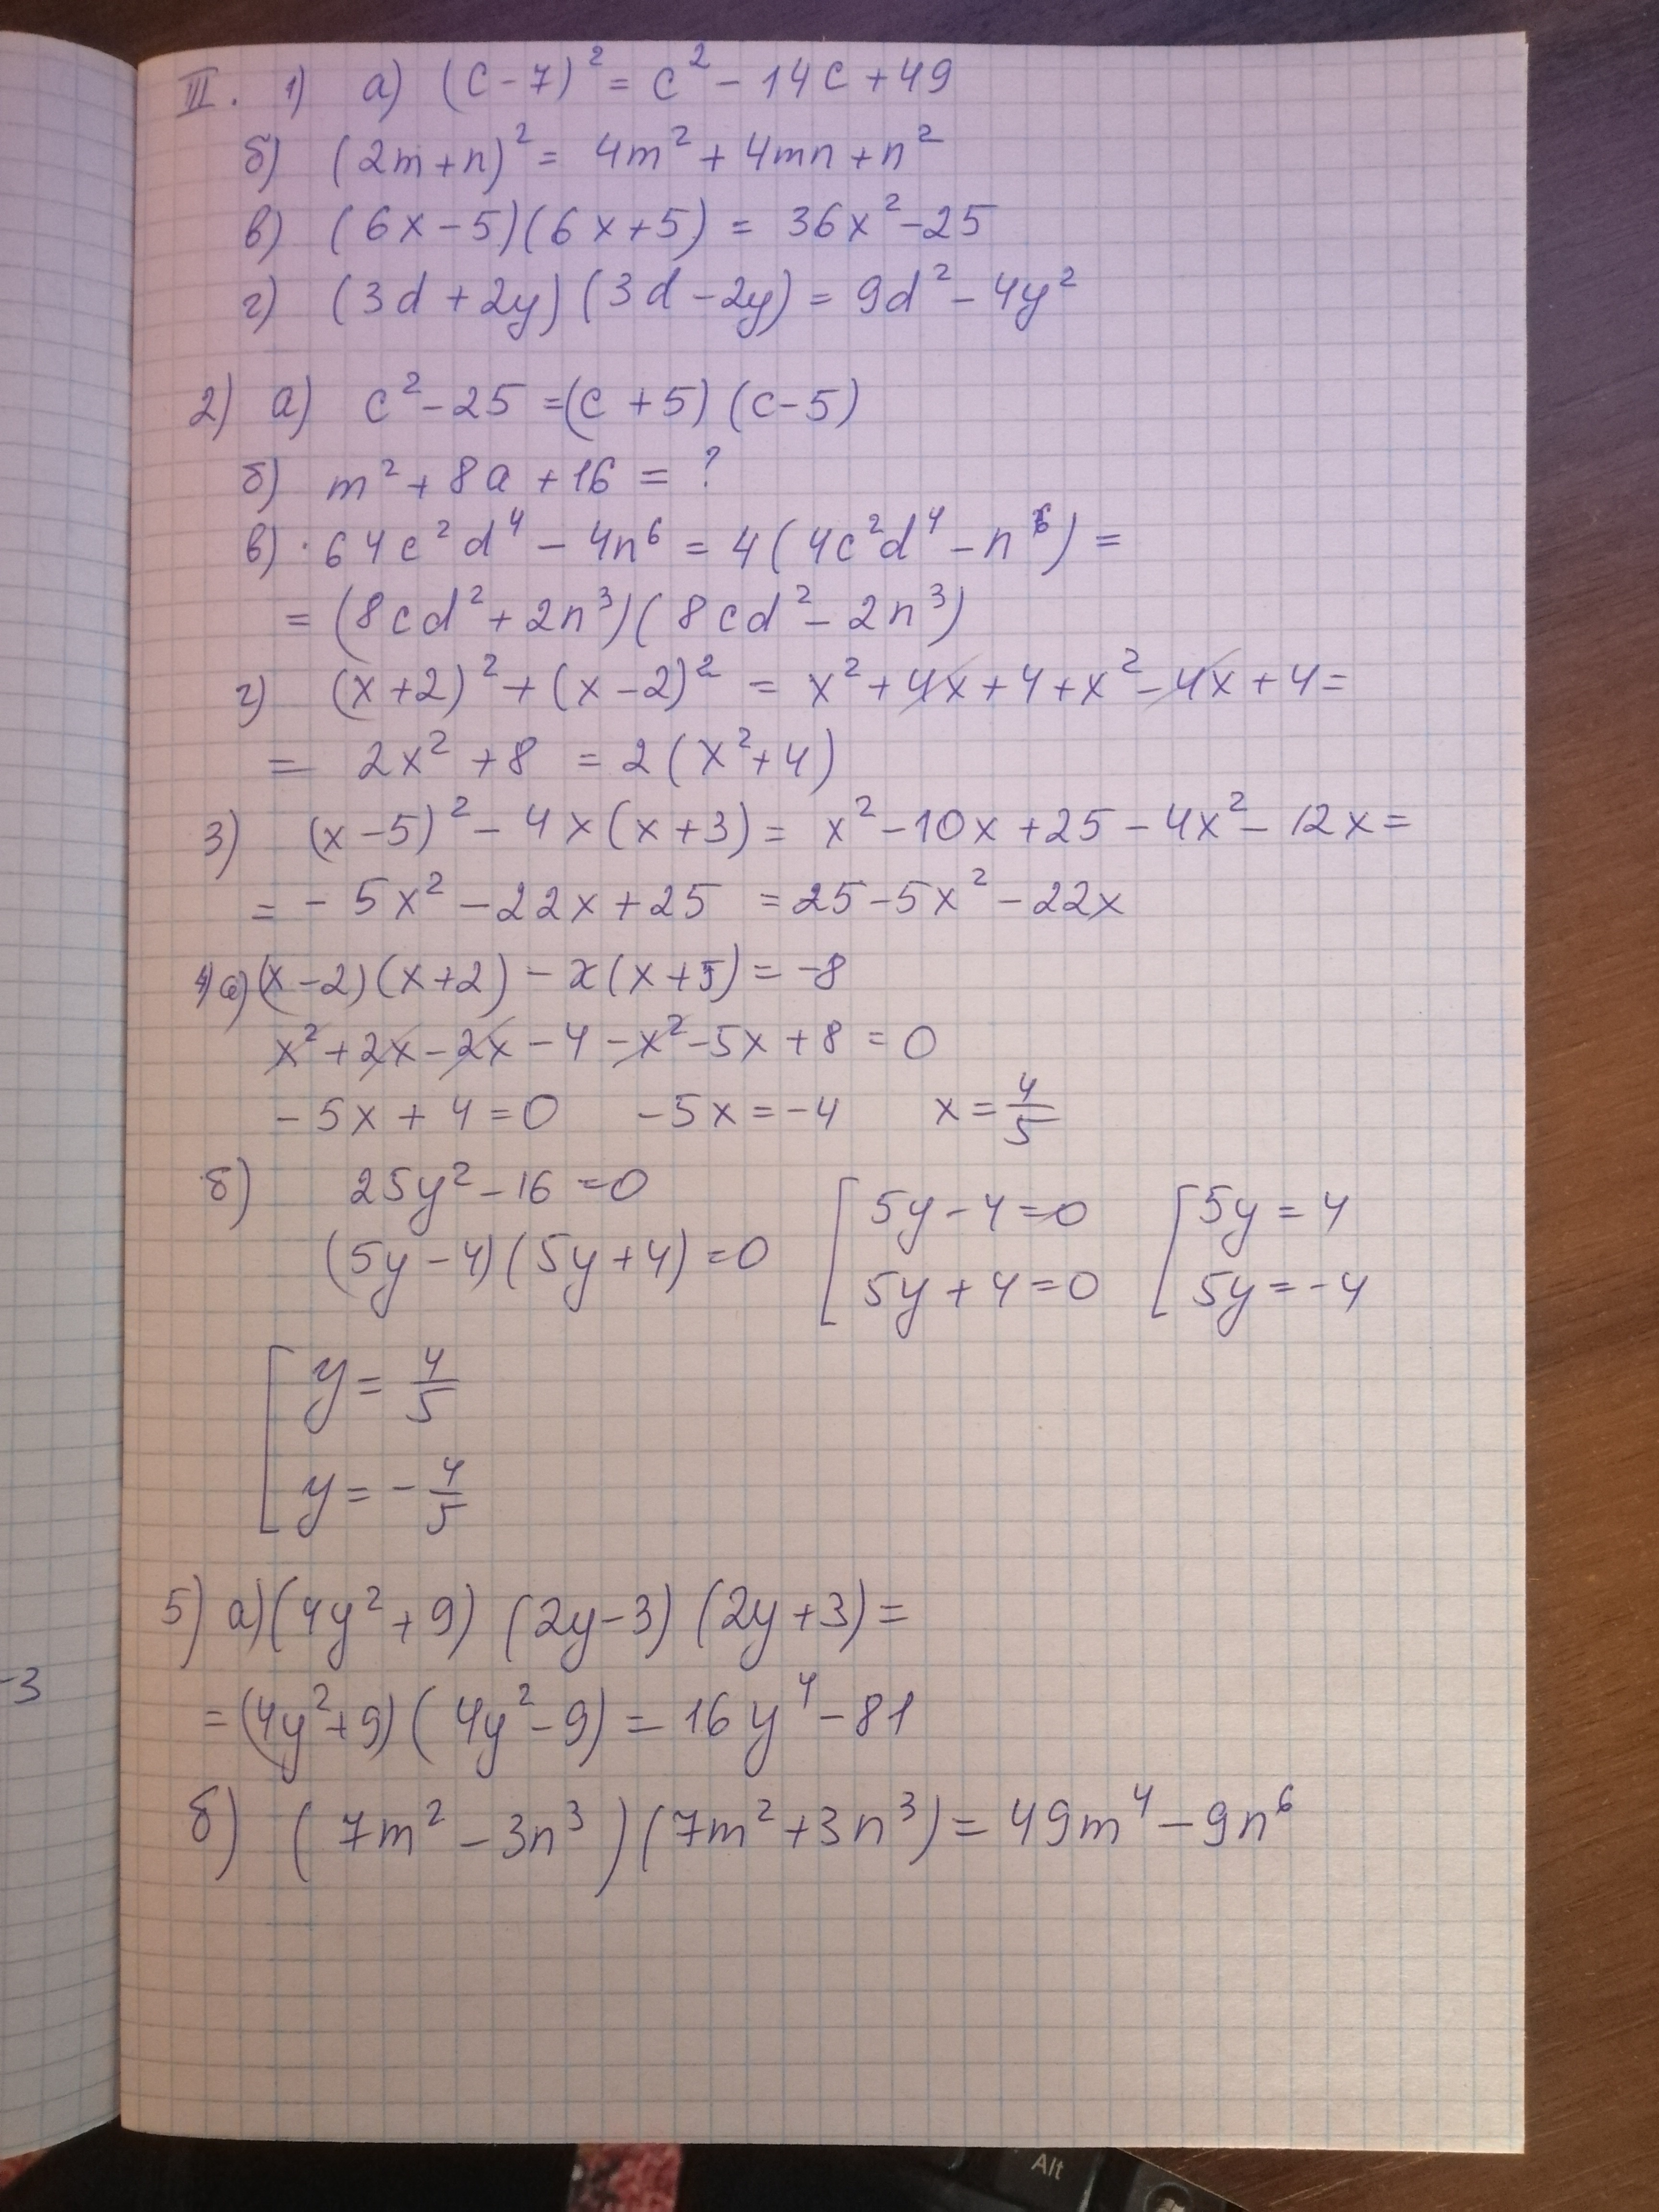 II. 1) а) (c-7)² = c² - 14c + 49
б) (2m+n)² = 4m² + 4mn + n²
в) (6x-5)(6x+5) = 36x² - 25
г) (3d+2y)(3d-2y) = 9d² - 4y²
2) а) c² - 25 = (c+5)(c-5)
б) m² + 8a + 16 = ?
в) 64c²d⁴ - 4n⁶ = 4(4c²d⁴ - n⁶) =
= (8cd² + 2n³)(8cd² - 2n³)
г) (x+2)² + (x-2)² = x² + 4x + 4 + x² - 4x + 4 =
= 2x² + 8 = 2(x²+4)
3) (x-5)² - 4x(x+3) = x² - 10x + 25 - 4x² - 12x =
= -5x² - 22x + 25 = 25 - 5x² - 22x
4) а) (x-2)(x+2) - x(x+5) = -8
x² + 2x - 2x - 4 - x² - 5x + 8 = 0
-5x + 4 = 0 -5x = -4 x = 4/5
б) 25y² - 16 = 0
(5y-4)(5y+4) = 0 [ 5y - 4 = 0 [ 5y = 4
5y + 4 = 0 5y = -4
[ y = 4/5
y = -4/5
5) а) (4y²+9)(2y-3)(2y+3) =
= (4y²+9)(4y²-9) = 16y⁴ - 81
б) (7m² - 3n³)(7m² + 3n³) = 49m⁴ - 9n⁶
-3
Alt